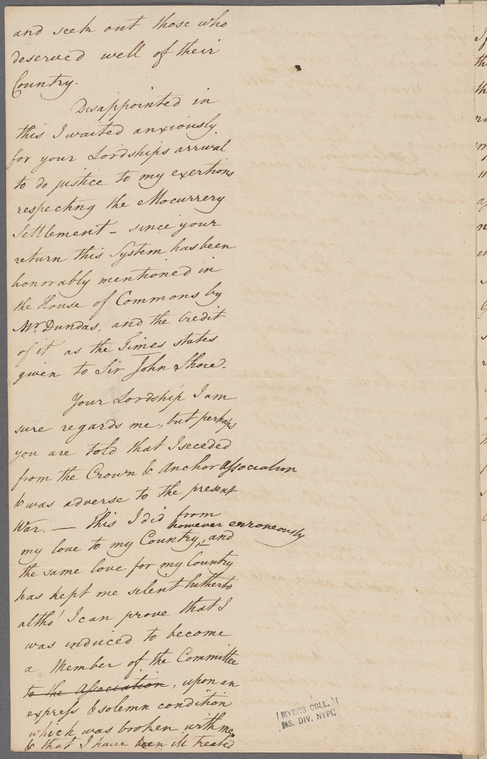 and seek out those who
deserved well of their
Country.
Disappointed in
this I waited anxiously
for your Lordships arrival
to do justice to my exertions
respecting the Mocurrery
Settlement - since your
return this System has been
honorably mentioned in
the House of Commons by
Mr Dundas, and the Credit
of it as the Times states
given to Sir John Shore.
Your Lordship I am
sure regards me, but perhaps
you are told that I seceded
from the Crown & Anchor Association
& was adverse to the present
War. — This I did from
however erroneously
my love to my Country, and
the same love for my Country
has kept me silent hitherto
altho' I can prove that I
was induced to become
a Member of the Committee
to the Association, upon an
express & solemn condition
which was broken with me
& that I have been ill treated
MYERS COLL.
MS. DIV. NYPL